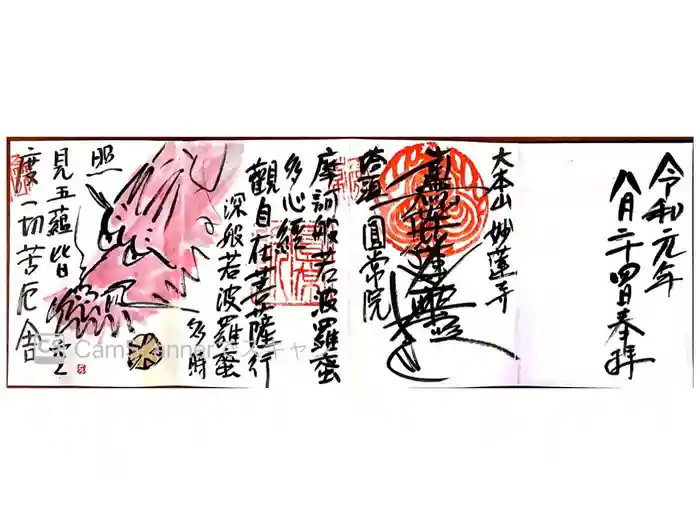 令和元年
八月二十四日奉拝
大本山 妙蓮寺
塔頭 圓常院
摩訶般若波羅蜜
多心経
觀自在菩薩行
深般若波羅蜜
多時
照
見五蘊皆
度一切苦厄舎
CamScanner